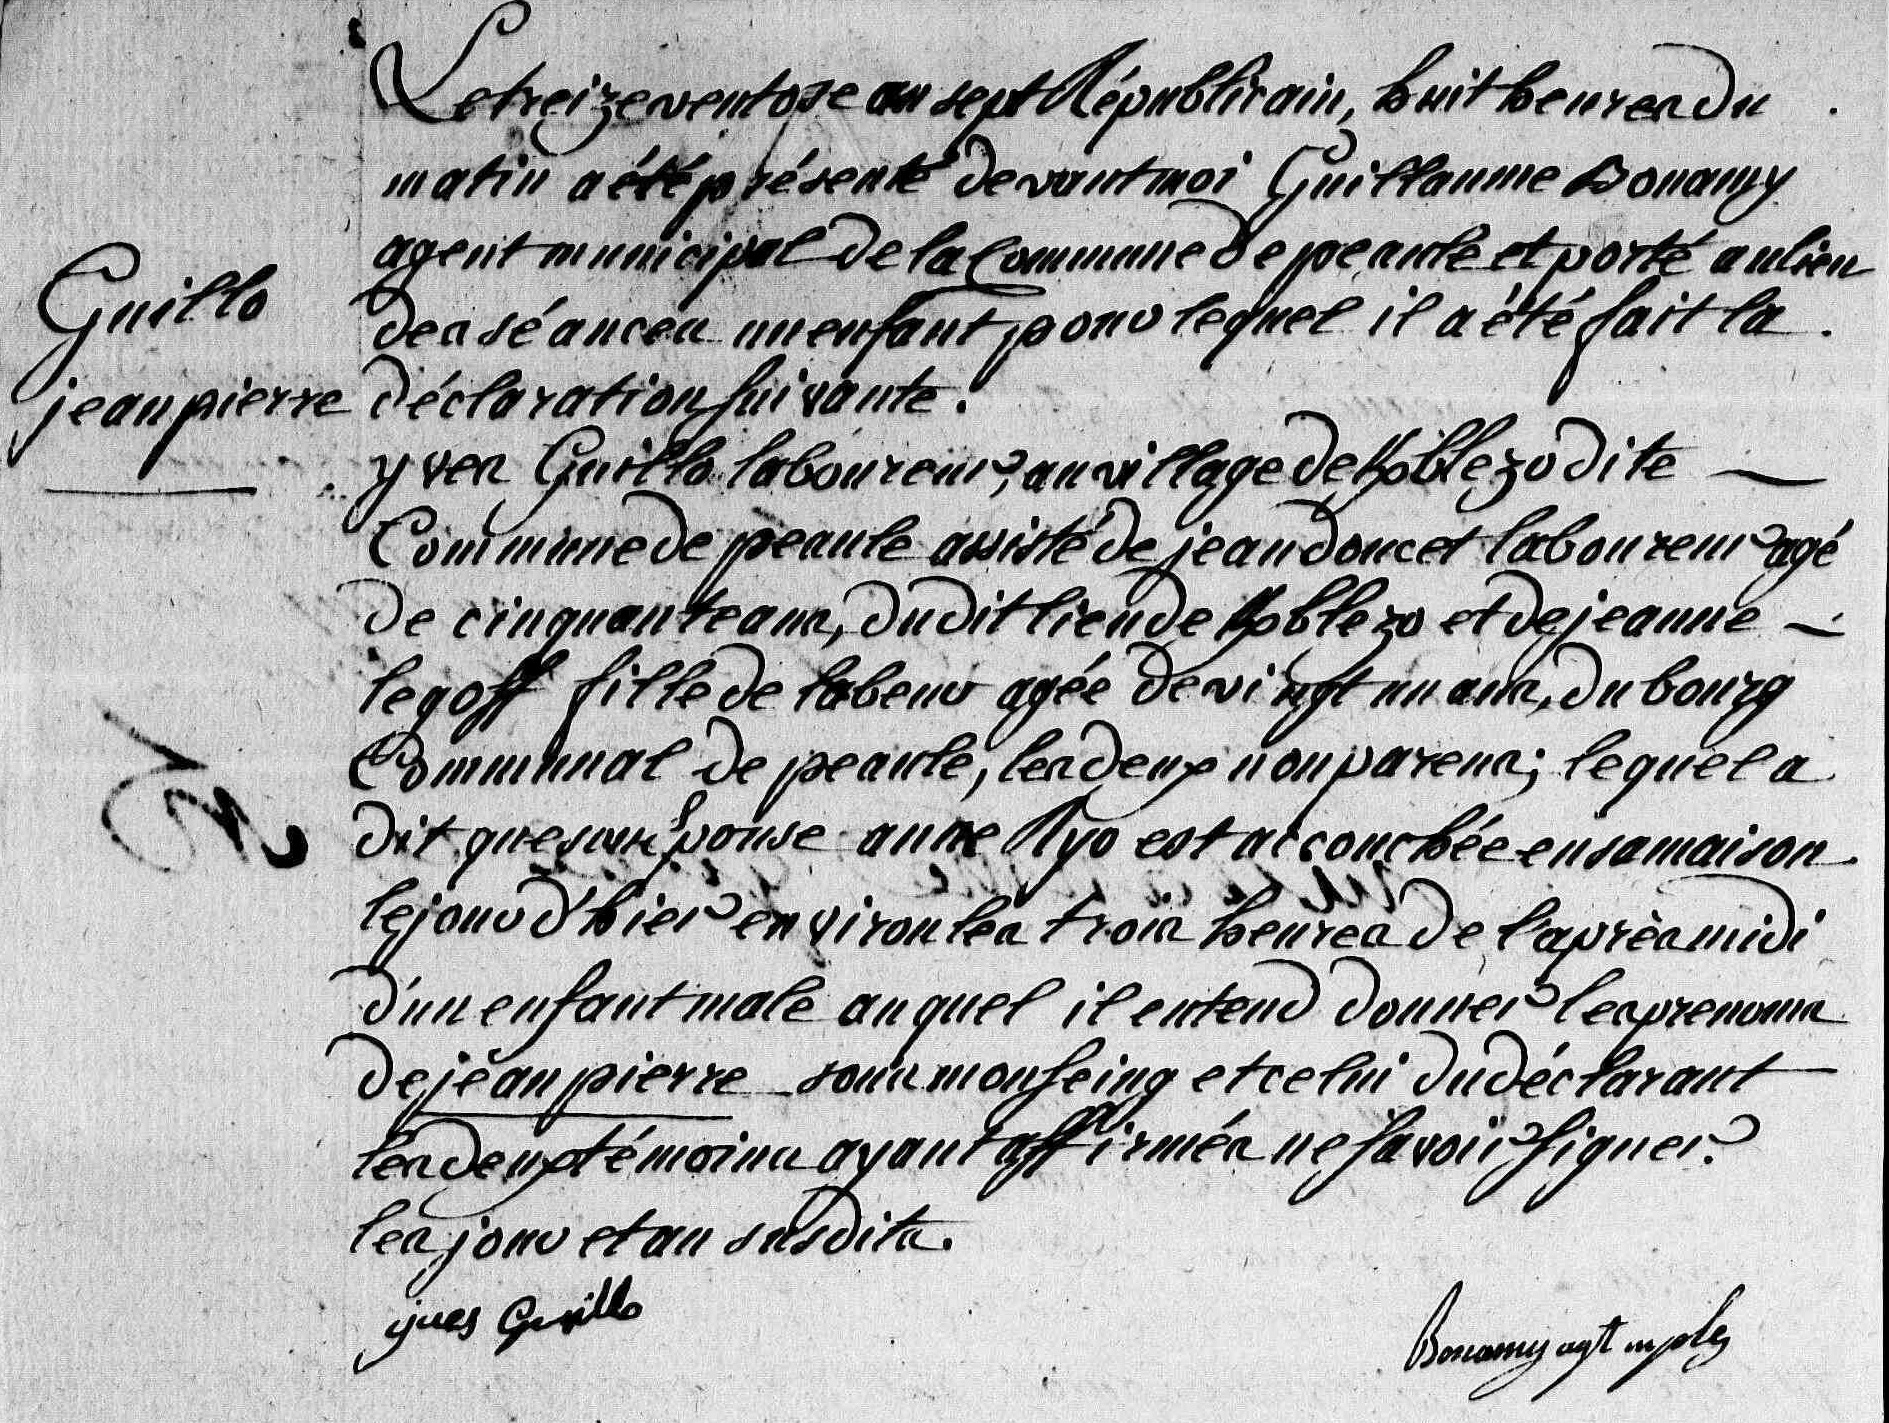 Le treize ventose an sept Républicain, huit heures du
matin a été présenté devant moi Guillaume Bonamy
agent municipal de la Commune de peaule et porté au lieu
des séances un enfant, pour lequel il a été fait la
Guillo
jean pierre
déclaration suivante.
yves Guillo laboureur, au village de Koblezo dite
Commune de peaule assisté de jean doucet laboureur agé
de cinquante ans, dudit lieu de Koblezo et de jeanne
le goff fille de labeur agée de vingt un ans, du bourg
Communal de peaule, les deux non parens; lequel a
dit que son Epouse anne Ryo est accouchée en sa maison
le jour d'hier environ les trois heures de l'après midi
d'un enfant male auquel il entend donner les prenoms
de jean pierre sous mon seing et celui du déclarant
les deux témoins ayant affirmés ne savoir signer.
les jour et an susdits.
yves Guillo
Bonamy agt mpl